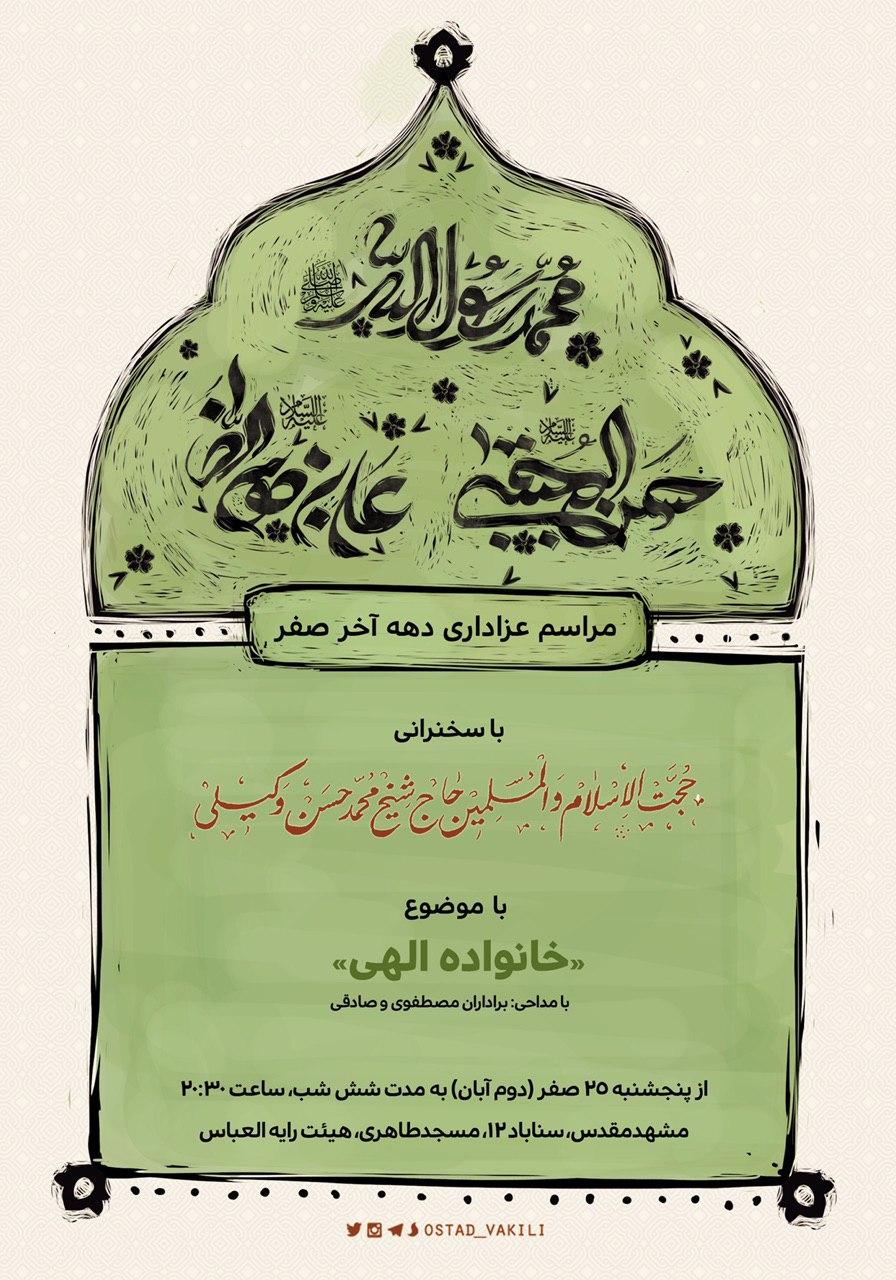 محمد رسول الله
صلی الله علیه وآله وسلم
حسن المجتبی
علیه السلام
علی بن موسی الرضا
علیه السلام
مراسم عزاداری دهه آخر صفر
با سخنرانی
حُجَّت الاِسْلام وَالْمُسْلِمین حاج شیخ مُحَمَّدحَسَن وَکیلی
با موضوع
«خانواده الهی»
با مداحی: براداران مصطفوی و صادقی
از پنجشنبه ۲۵ صفر (دوم آبان) به مدت شش شب، ساعت ۲۰:۳۰
مشهدمقدس، سناباد ۱۲، مسجدطاهری، هیئت رایه العباس
OSTAD_VAKILI